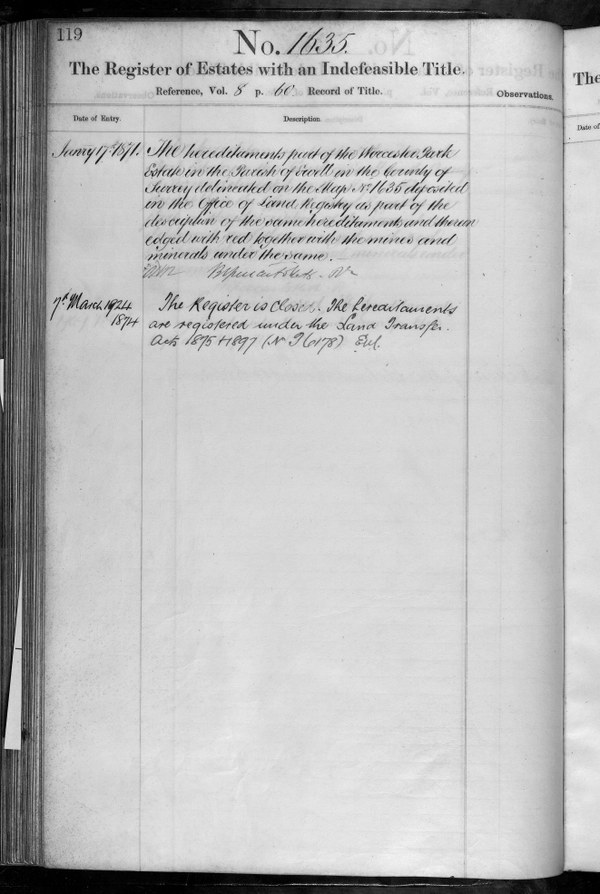 119
No. 1635.
The Register of Estates with an Indefeasible Title.
Reference, Vol. 8 p. 60 Record of Title.
Observations.
Date of Entry.
Description.
17th 1871.
The hereditaments part of the Worcester Park
Estate in the Parish of Ewell in the County of
Surrey delineated on the Map No. 1635 deposited
in the Office of Land Registry as part of the
description of the same hereditaments and therein
edged with red together with the mines and
minerals under the same.
7th March 1924
1874
The Register is Closed. The hereditaments
are registered under the Land Transfer
Acts 1875 & 1897 (No
The
Date of